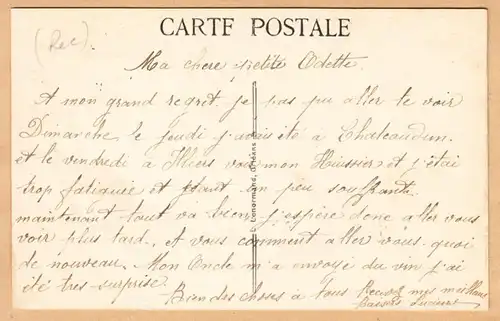 (Rec)
CARTE POSTALE
Ma chere petite Odette.
A mon grand regret je pas pu aller te voir
Dimanche le jeudi j'avais été a Chateaudun.
et le vendredi a Illiers voir mon Huissier et j'étai
trop fatiguée et étant un peu souffrante.
maintenant tout va bien j'espère donc aller vous
voir plus tard, et vous comment aller vous. quoi
de nouveau. Mon Oncle m'a envoyé du vin j'ai
été tres surprise.
Bien des choses à tous Recever mes meilleurs
Baisers Lucienne
Lenormand, Orléans